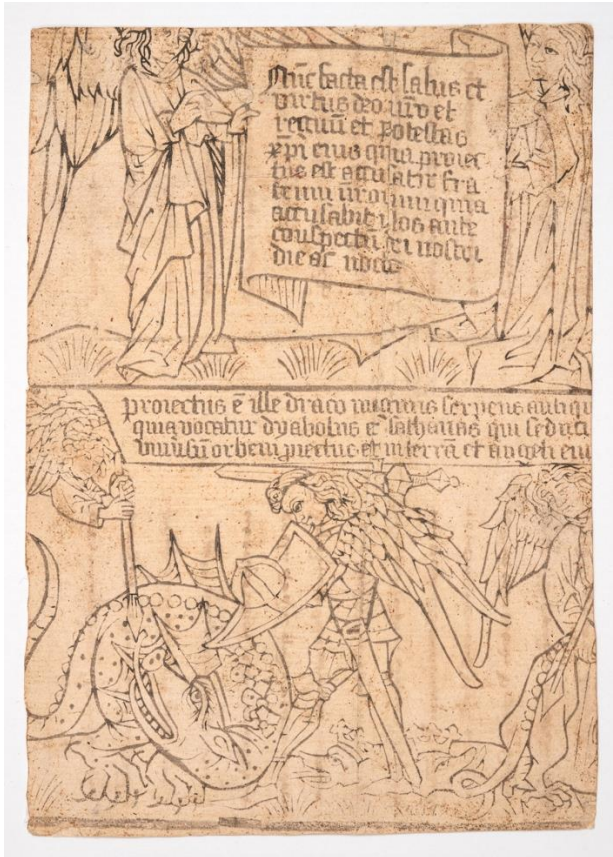 Nūc facta est salus et
virtus deo nr̄o et
regnū et potestas
xpi eius quia proiec
tus est accusator fra
trum nr̄orum quia
accusabit ilos ante
conspectū dei nostri
die ac nocte
proiectus ē ille draco magnus serpens antiqu
quia vocatur dyabolus et sathanas qui seduci
orbem et in terrā et angeli eiu